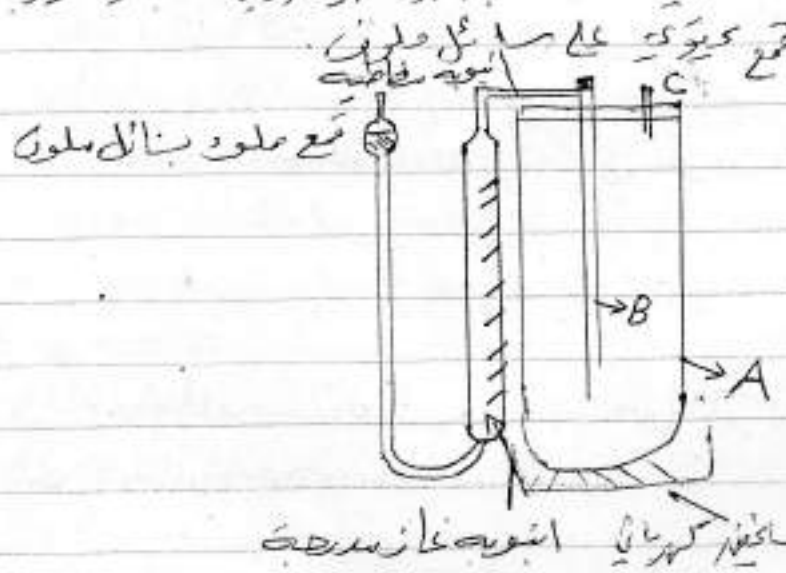 قمع يحتوي على سائل ملون.
انبوبه مطاطية
C
قمع مملوء بسائل ملون
B
A
انبوبه غاز مدرجة
كهربائي